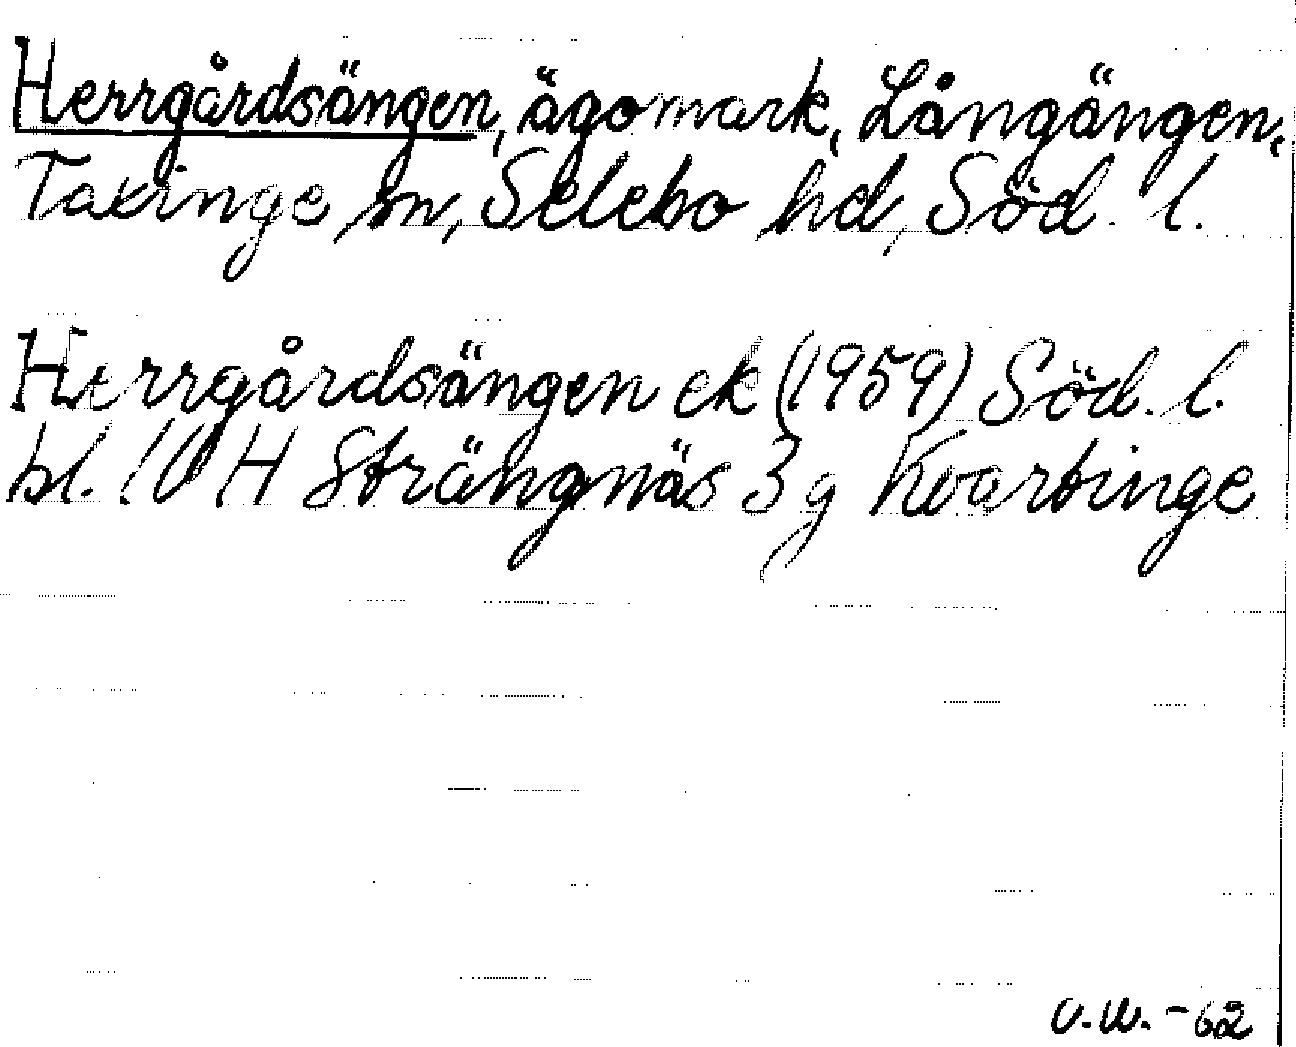 Herrgårdsängen, ägomark, Långängen,
Taxinge sn, Selebo hd, Söd. l.
Herrgårdsängen ek (1959) Söd. l.
bl. 10 H Strängnäs 3 g Kvarbinge
U.W. -62